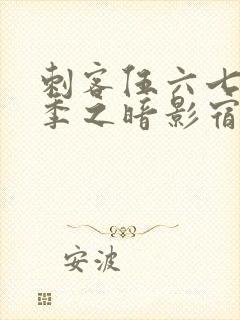 刺客伍六七
季之暗影宿
安波